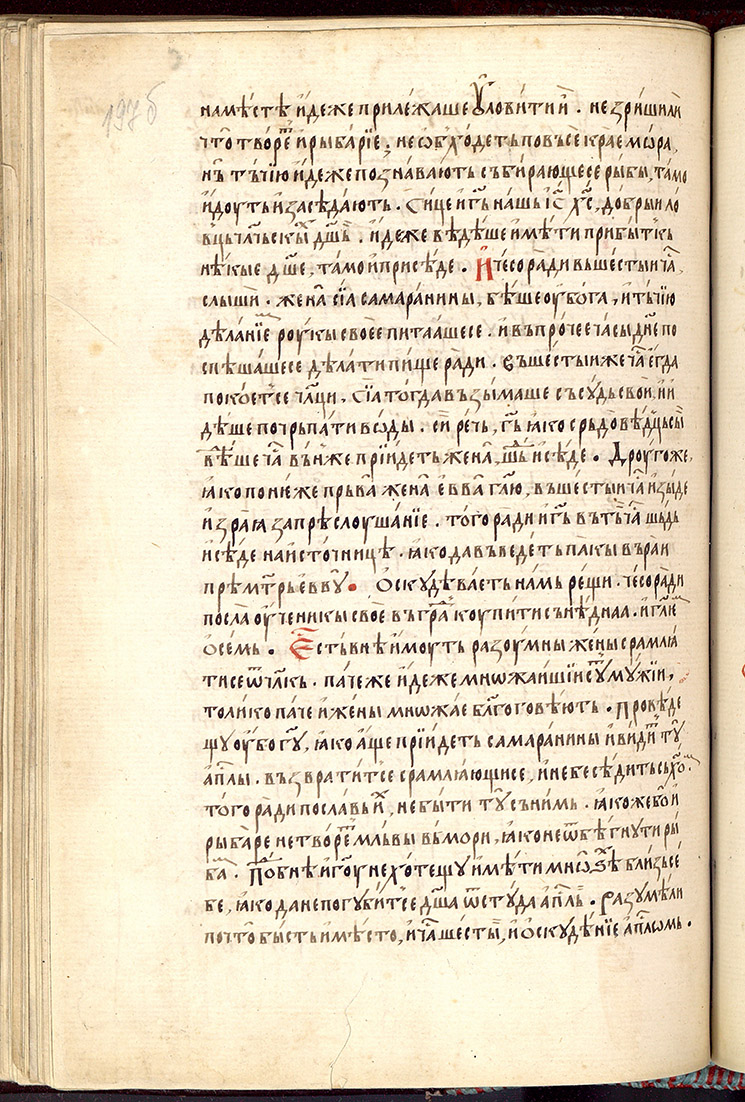 197б
на мѣстѣ и҆де́же прилѣжа́ше ᲂу҆лови́ти и҆̀ . не зри́ши ли
что̀ творе́ть и҆ рыба́рїе . не ѡ҆бхо́деть по въсе́ кра́е мо́ра,
нь̀ тъ́чїю и҆де́же позна́вають събира́ющесе ры́бы, та́мо
и҆доу́ть и҆ засѣ́дають . Си́це и҆ гь҃ на́шь і҆с҃ х҃с, до́брыи ло
в́ць чл҃чьскы́ дш҃ь . и҆де́же вѣ́дѣше и҆мѣ́ти прибы́тькь
нѣ́кые дш҃е, та́мо и҆ присѣ́де . И҆ чесо̀ ра́ди въ шесты́и ча̀,
слы́ши . жена̀ сїа̀ самара́нины, бѣ́ше ᲂу҆бо́га, и҆ тъ́чїю
дѣ́ланїе роу́кы свое́е пита́ашесе . и҆ въ про́чее ча́сы дн҃е по
спѣша́шесе дѣ́лати пи́ще ра́ди . въ шесты́и же ча̀ е҆гда̀
поко́етсе чл҃ци, сїа̀ тогда̀ въ́зьімаше съсу́дь сво́и, и҆ и҆
дѣ́ше почрьпа́ти во́ды . си́ рѣ́чь, гь҃ ꙗ҆́ко срьдовѣ́дьць сы̀
вѣ́ше ча̀ въ ньже прїи́деть жена̀, ше́дь и҆ сѣ́де . Дроу́гоже,
ꙗ҆́ко поне́же прьва́а жена̀ е҆́вва гл҃ю, въ шесты́и ча̀ и҆зы́де
и҆з ра́ꙗ за прѣслоуша́нїе . того̀ ра́ди и҆ гь҃ въ тъ̀ ча̀ шь́дь
и҆ сѣ́де на и҆сто́чницѣ . ꙗ҆́ко да въведе́ть па́кы въ ра́и
прѣм́трь е҆́ввѹ . Ѻ҆скудѣва́еть на́мь ре́щи . чесо̀ ра́ди
посла̀ ᲂу҆ченикы̀ свое́ въ гра̀ коупи́ти сънѣ́днаа . и҆ гл҃ю̀
ѻ҆ се́мь . Е҆стьвнѣ и҆́моуть разоу́мны же́ны срамлꙗ́
тисе ѿ чл҃кь . па́че же и҆де́же мно́жаишїи су́ть му́жїи,
толи́ко па́че и҆ же́ны мно́жае бл҃гоговѣ́ють . Провѣ́де
щу ᲂу҆бо гу҃, ꙗ҆́ко а҆́ще прїи́деть самара́нины и҆ ви́дить тѹ̀
а҆пⷭ҇лы . възврати́тсе срамлꙗ́ющисе, и҆ не бесѣ́дить съ хо҃м .
того̀ ра́ди посла́вь и҆́х, не бы́ти тѹ̀ сь ни́мь . ꙗ҆́коже бо̀ и҆
рыба́ре не творе́ть мль́вы въ мо́ри, ꙗ҆́ко не ѿбѣ́гнути ры
ба́м . По́бнѣ и҆ гоу҃ не хоте́щу и҆мѣ́ти мно́ѕѣ бли́зь се́
бе, ꙗ҆́ко да не погуби́тсе дш҃а ѿ сту́да а҆пⷭ҇ль . Разумѣ́ ли
почто̀ бы́сть и҆ мѣ́сто, и҆ ча̀ шесты́и, и҆ ѻ҆скудѣ́нїе а҆пⷭ҇лѡмь .